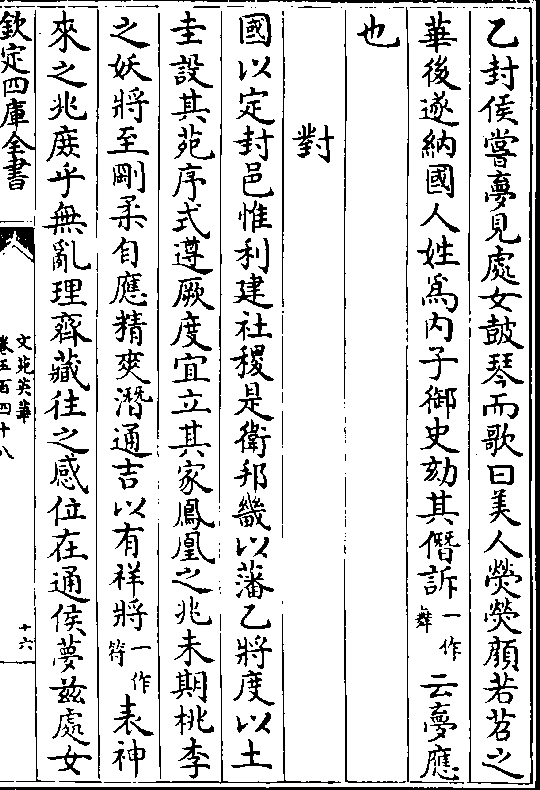 乙封侯嘗夢見處女鼓琴而歌曰美人熒熒顔若苕之
華後遂納國人姓爲内子御史劾其僭訴一作辭云夢應
也
對
國以定封邑惟利建社稷是衛邦畿以藩乙將度以土
圭設其苑序式遵厥度宜立其家鳳凰之兆未期桃李
之妖將至剛柔自應精爽潛通吉以有祥將一作符表神
來之兆庻乎無亂理齊藏往之感位在通侯夢兹處女
欽定四庫全書
文苑英華
卷五百四十八
十六